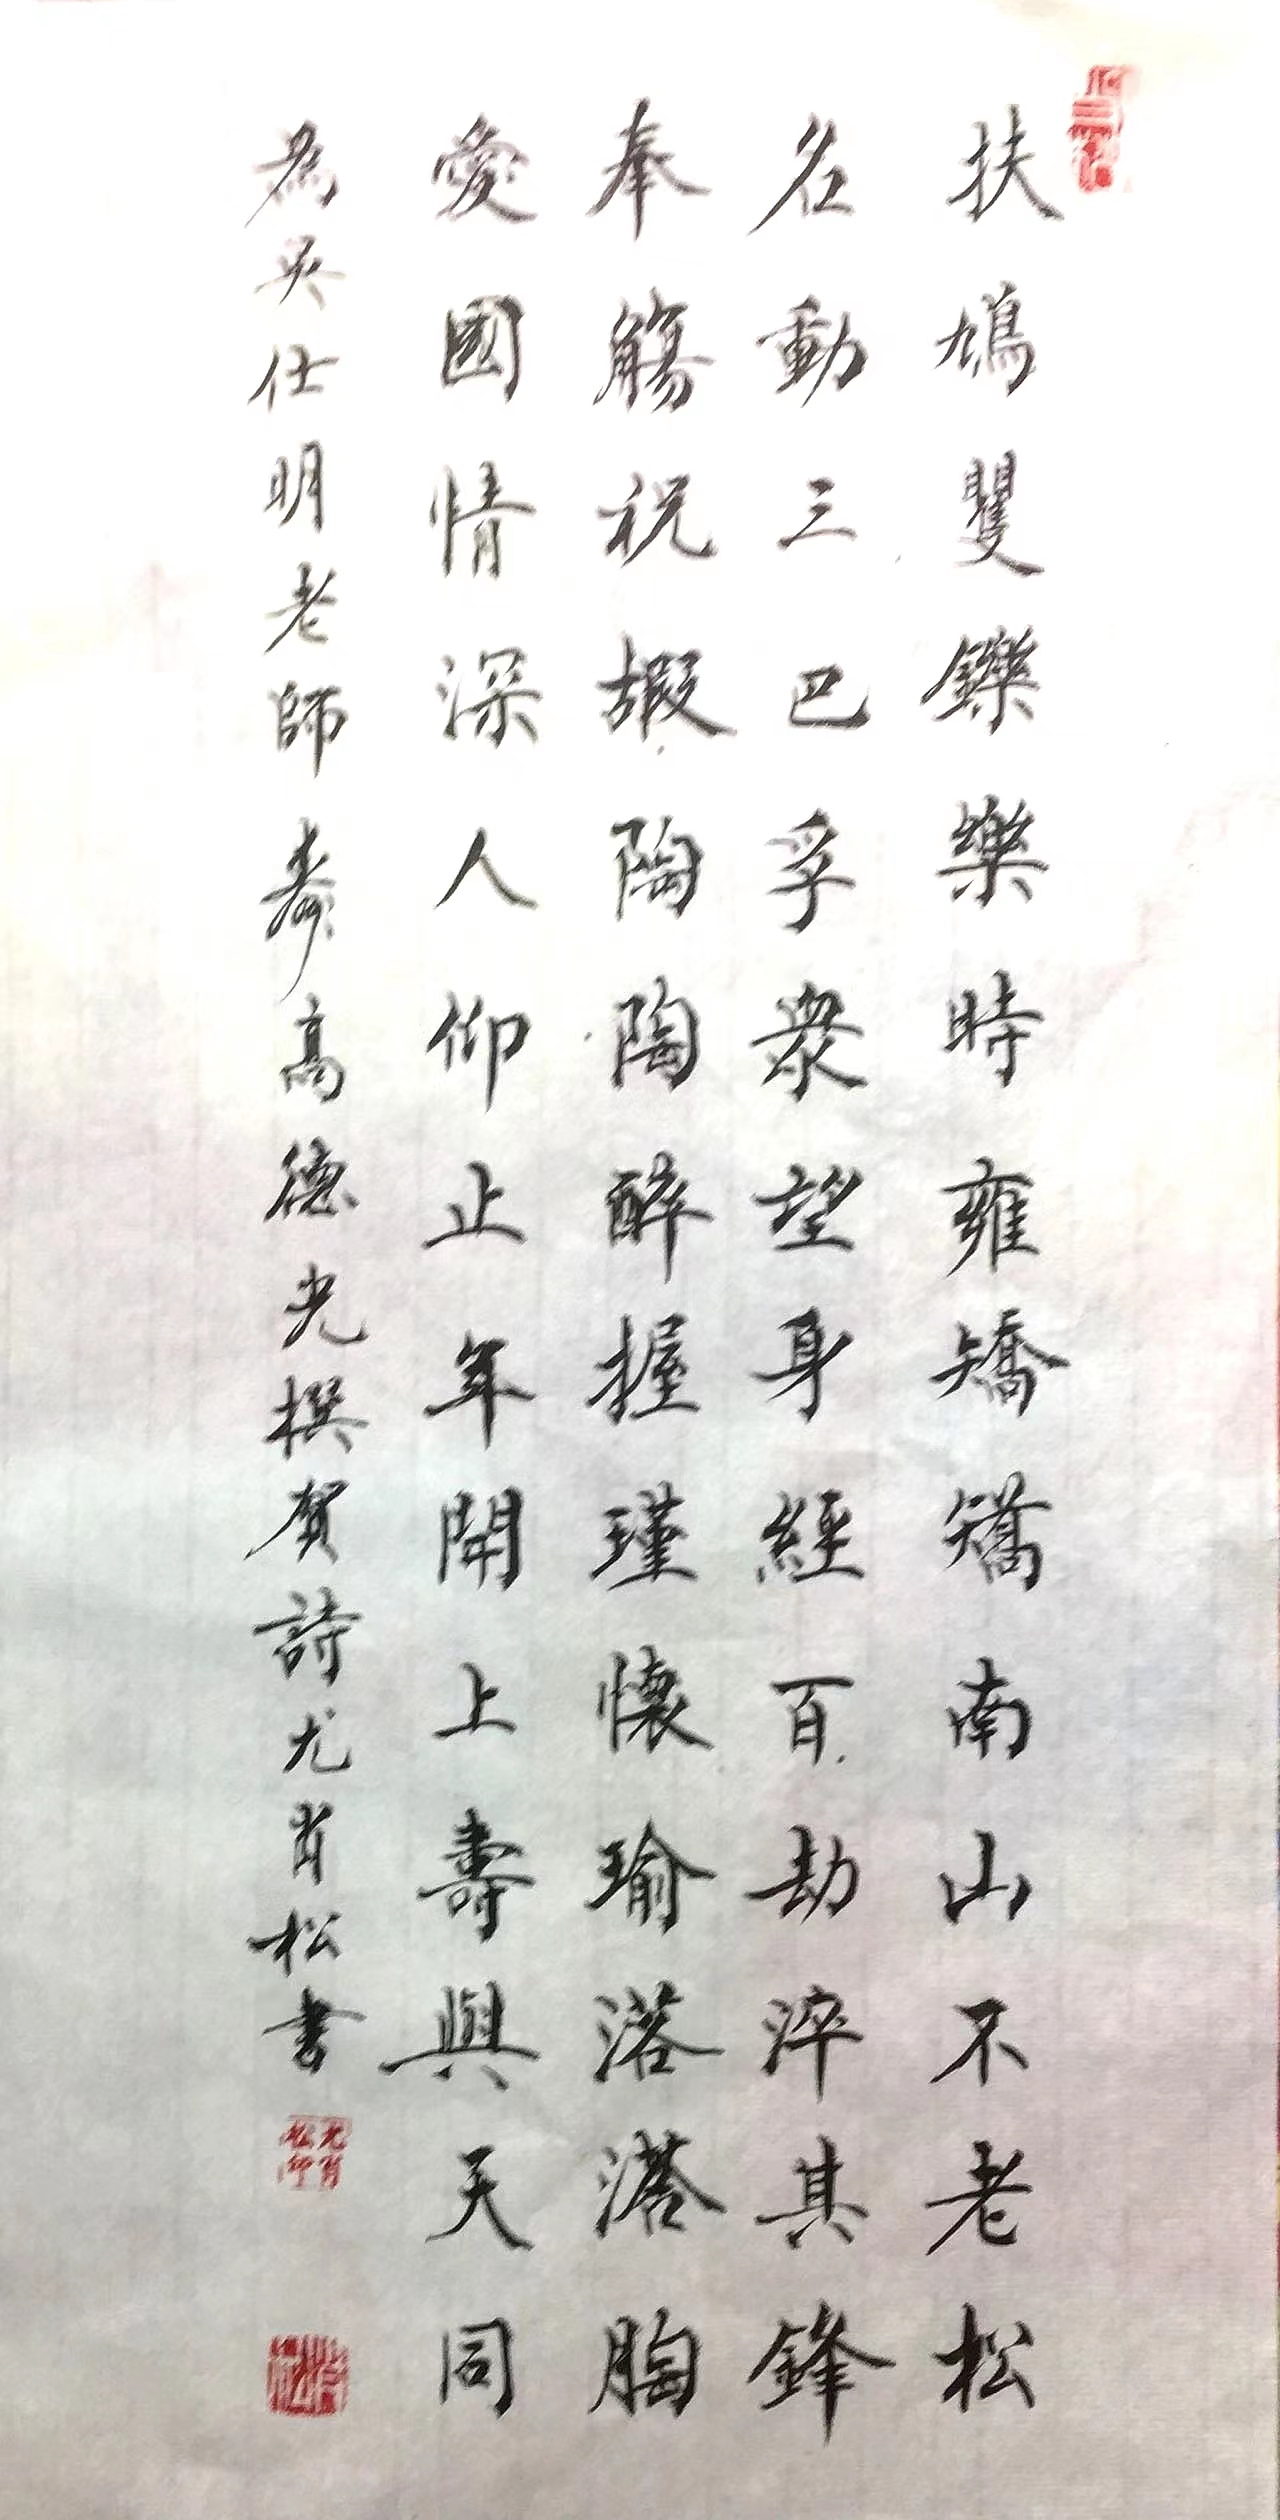 扶鳩矍鑠樂時雍矯矯南山不老松
名動三巴孚衆望身經百劫淬其鋒
奉觴祝嘏陶陶醉握瑾懷瑜落落胸
愛國情深人仰止年開上壽與天同
為吳仕明老師壽高德光撰賀詩尤肖松書
尤肖松印